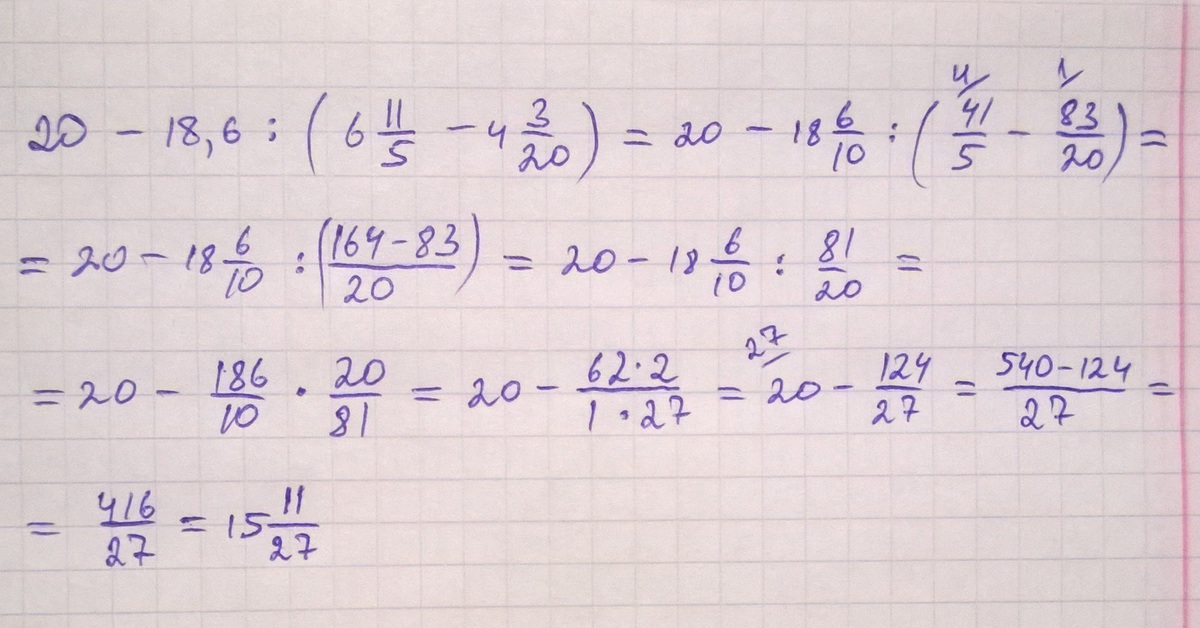 20 - 18,6 : (6 11/5 - 4 3/20) = 20 - 18 6/10 : (41/5 4/ - 83/20 1/) =
= 20 - 18 6/10 : (164-83/20) = 20 - 18 6/10 : 81/20 =
= 20 - 186/10 · 20/81 = 20 - 62·2/1·27 = 20 27/ - 124/27 = 540-124/27 =
= 416/27 = 15 11/27